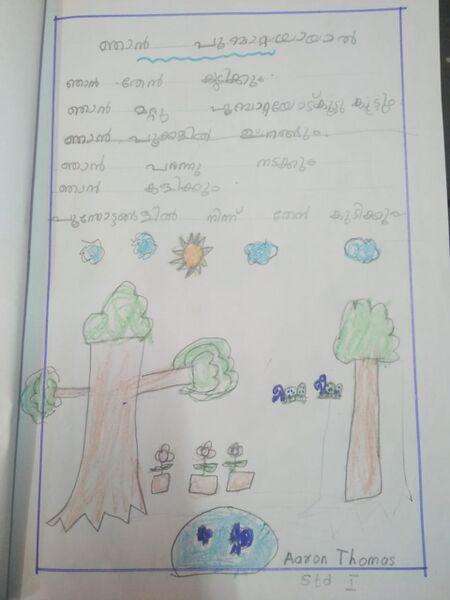 ഞാൻ പൂമ്പാറ്റയായാൽ
ഞാൻ തേൻ കുടിക്കും.
ഞാൻ മറ്റു പൂമ്പാറ്റയോട് കൂട്ടു കൂട്ടും
ഞാൻ പൂക്കളിൽ ഉറങ്ങും.
ഞാൻ പറന്നു നടക്കും
ഞാൻ കളിക്കും
പൂന്തോട്ടങ്ങളിൽ നിന്ന് തേൻ കുടിക്കും
Aaron Thomas
Std I